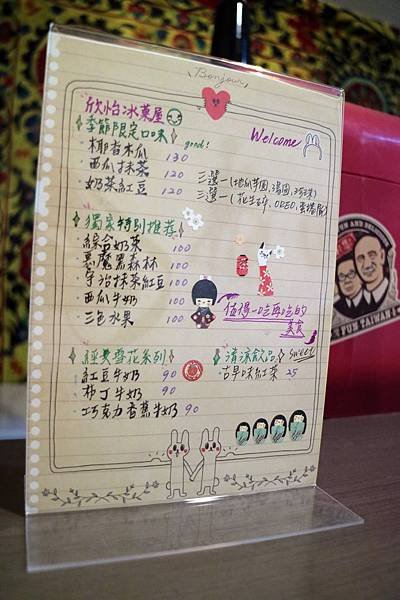 Bonjour
欣怡冰菓屋
Welcome
季節限定口味 good!
·椰香木瓜 130
·西瓜抹茶 120
·奶茶紅豆 120
三選一(地瓜芋圓,湯圓,珍珠)
三選一(花生碎, OREO, 蛋捲屑)
獨家特別推荐
·綜合奶茶 100
·惡魔黑森林 100
·宇治抹茶紅豆 100
·西瓜牛奶 100
·三色水果 100
值得一吃再吃的
美食
經典雪花系列
·紅豆牛奶 90
·布丁牛奶 90
·巧克力香蕉牛奶 90
清涼飲品 sweet
·古早味紅茶 25
FUN AND
FUN TAIWAN